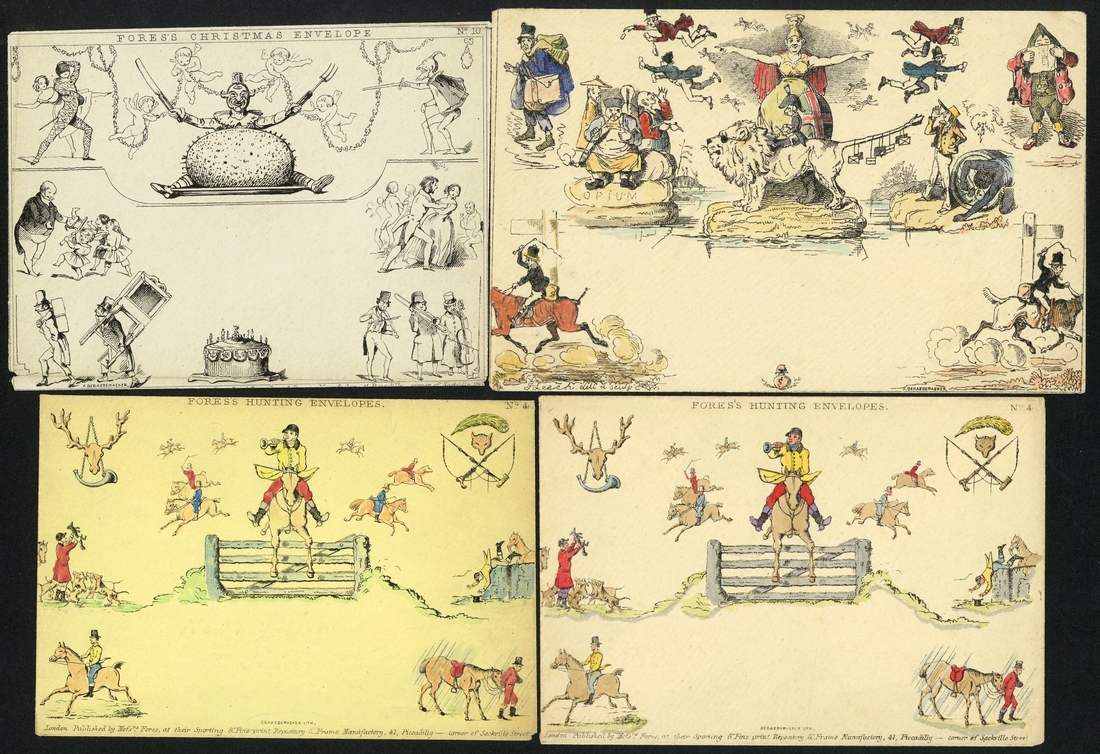 FORES'S CHRISTMAS ENVELOPE
No 10
OPIUM
FORES'S HUNTING ENVELOPES.
No 4
London Published by Messrs. Fores, at their Sporting & Fine print Repository & Frame Manufactory, 41, Piccadilly — corner of Sackville Street
FORES'S HUNTING ENVELOPES.
No 4
London Published by Messrs. Fores, at their Sporting & Fine print Repository & Frame Manufactory, 41, Piccadilly — corner of Sackville Street